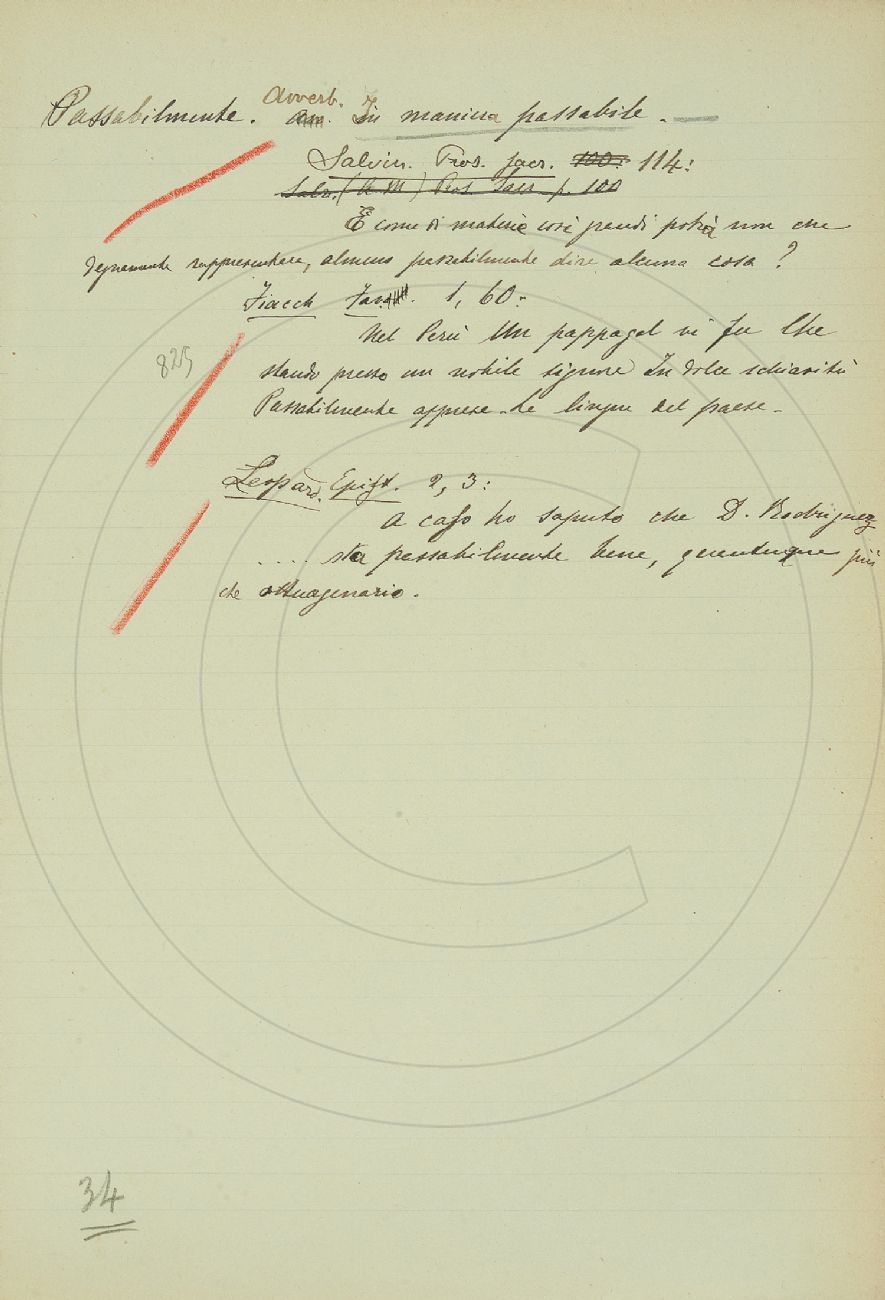 Passabilmente. Avverb. In maniera passabile. —
Salvin. Pros. sacr. 100: 114:
Salv. (A. M) Pros. Sacr. p. 100
E come di materie così grandi potrà non che
degnamente rappresentare, almeno passabilmente dire alcuna cosa?
Fiacch. Fav. 1, 60:
Nel Perù Un pappagal vi fu Che
stando presso un nobile signore In dolce schiavitù
825
Passabilmente apprese La lingua del paese.
Leopard. Epist. 2, 3:
A caso ho saputo che D. Rodriguez
.... sta passabilmente bene, quantunque più
che ottuagenario.
34